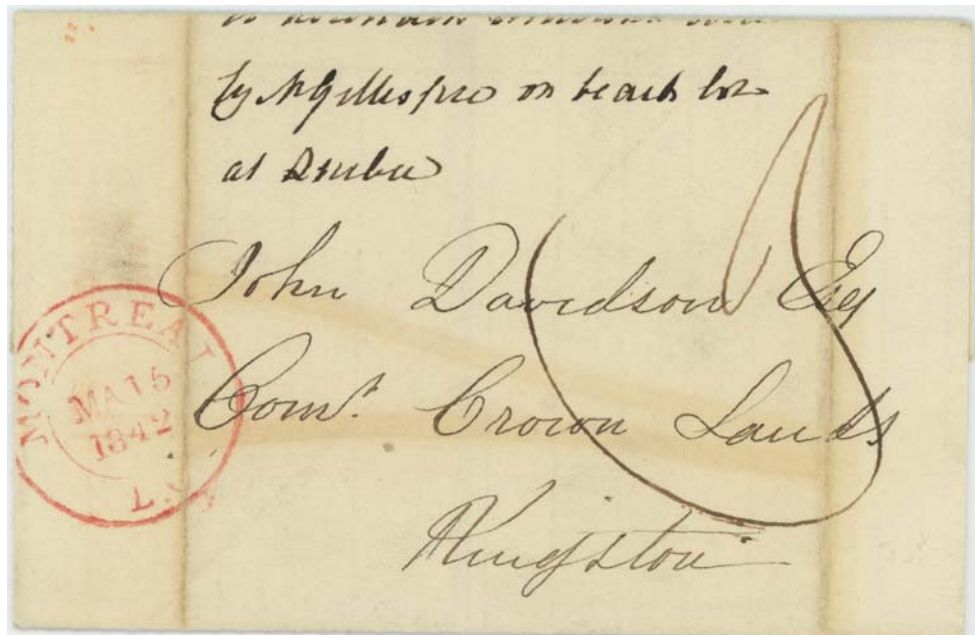 by Mr Gillespie on beach lot
at
John Davidson Esq
Comr. Crown Lands
Kingston
MONTREAL
MA 15
1842
L.C